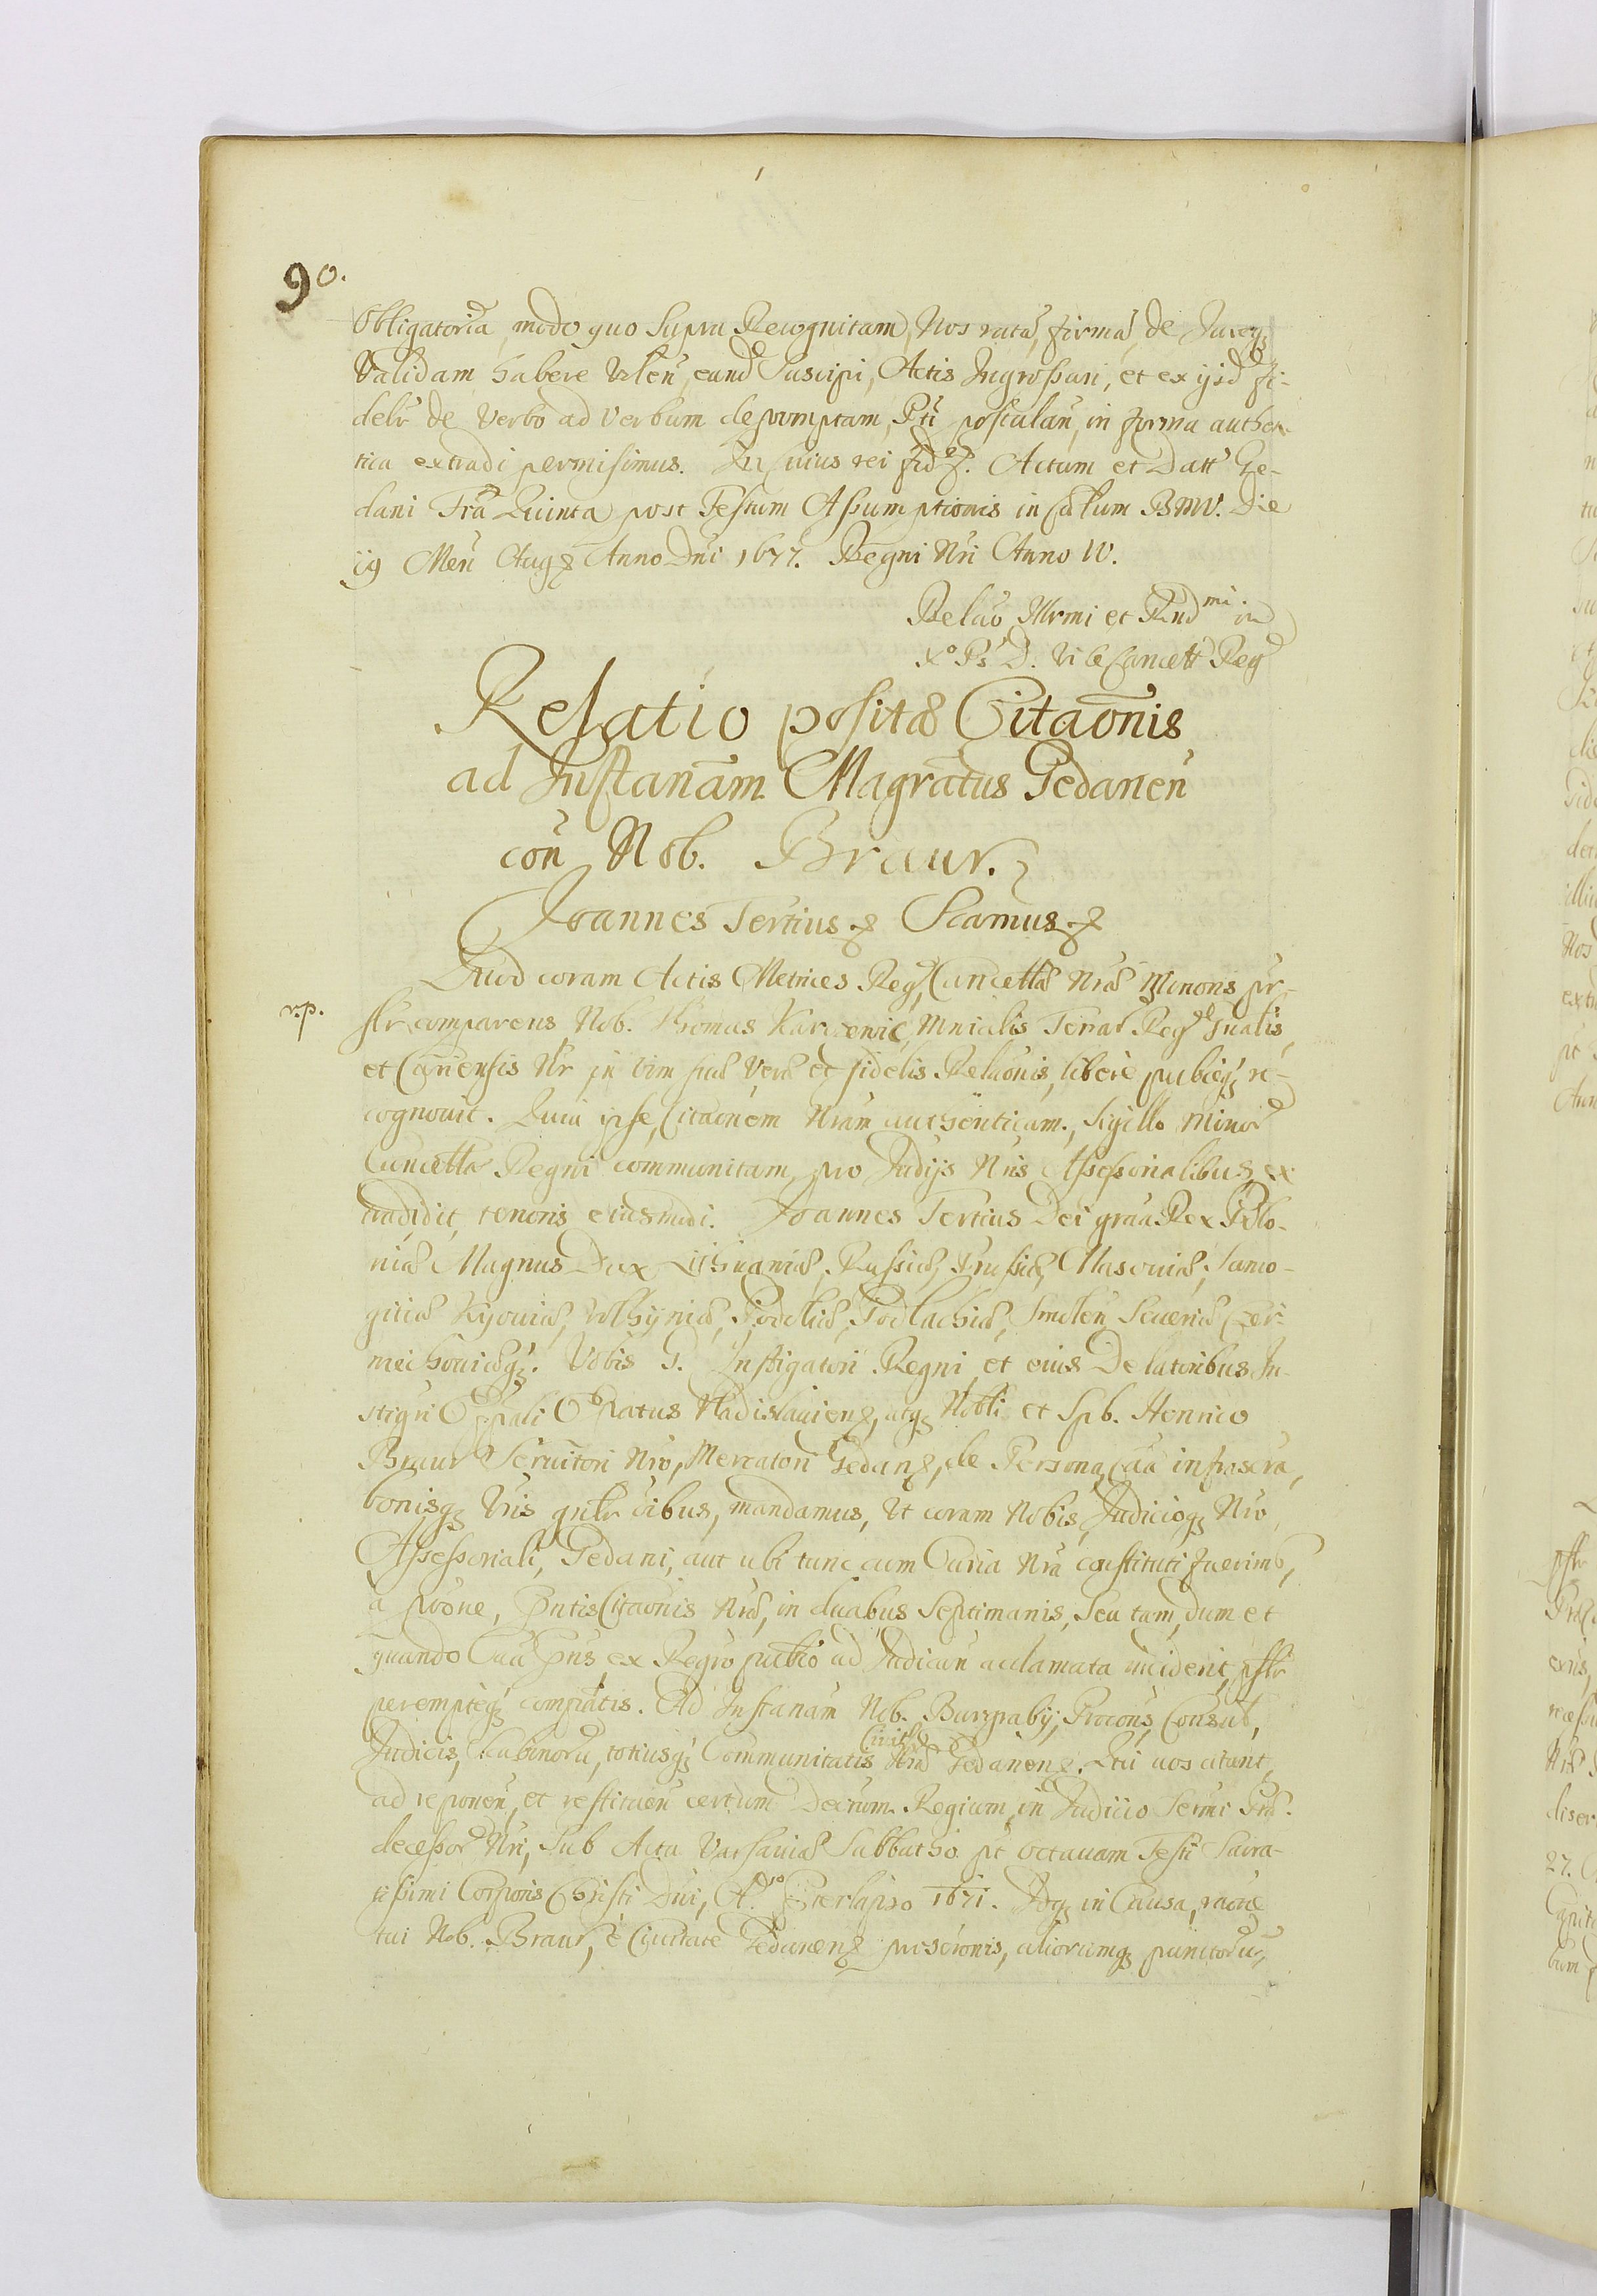 90.
Obligatoria, modo quo supra Recognitam, Nos ratã, firmã, de Jureq3
Validam habere Volen, eand Suscipi, Actis Ingrossari, et ex ijsd fi-
delr de Verbo ad Verbum depromptam, Pti postulan, in forma authen-
tica extradi permisimus. In Cuius rei fid. Actum et Datt Ge-
dani Fra Quinta post Festum Assumptionis in Cælum BMV. Die
19 Men Aug Anno Dni 1677. Regni Nri Anno IV.
Relao Illrmi et Rnd mi in
Xo Ps D. Vice Cancell Reg
Relatio positæ Citaonis
ad Instanam Magratus Gedanen
con Nob. Braur.
Joannes Tertius Scamus
Quod coram Actis Metrices Reg Cancellæ Nræ Minoris pr-
r.p.
slr comparens Nob. Thomas Mnialis Terrar Reg Gnalis,
et Nr in vim suæ Veræ et fidelis Relaonis, libere publicq3 re-
cognouit. Quia ipse, Citaonem Nram authenticam, Sigillo Minor
Cancellæ Regni communitam, pro Judijs Nris Assessorialibus, ex
tradidit, tenoris eiusmodi. Joannes Tertius Dei graa Rex Polo-
niæ Magnus Dux Lithuaniæ, Russiæ, Prussiæ, Masouiæ, Samo-
gitiæ Kyouiæ, Volhyniæ, Podoliæ, Podlachiæ, Smolen Seueriæ Czer-
niechouiæq3. Vobis G. Instigatori Regni et eius Delatoribus In-
stigri Oppali Opatus Vladislauien, atq3 Nobli et Spb. Henrico
Braur Seruitori Nro, Mercatori Gedan, de Persona, Caa infrascra,
bonisq3 Vris gnlr oibus, mandamus, Ut coram Nobis, Judicioq3 Nro
Assessoriali, Gedani, aut ubi tunc cum Curia Nra constituti fuerimus,
a pone, Pntis Citaonis Nræ, in duabus Septimanis, Seu tam, dum et
quando Caa Pns, ex Regro publico ad Judican acclamata inciderit, pslr
peremptieq3 compatis. Ad Instanam Nob. Burgrabij, Procons, Consul,
Judicis, Scabinoru, totiusq3 Communitatis Civitis Nræ Gedanen. Qui uos citant,
ad reponen, et restituen certum Decrum Regium, in Judicio Sermi Præ-
decessor Nri, Sub Acta Varsauiæ Sabbatho pt octauam Festi Sacra-
tissimi Corporis Christi Dni, Ao Præterlapso 1671. in Causa, raone
tui Nob. Braur, è Ciuitate Gedanen proscronis, aliorumq3 punctoru,